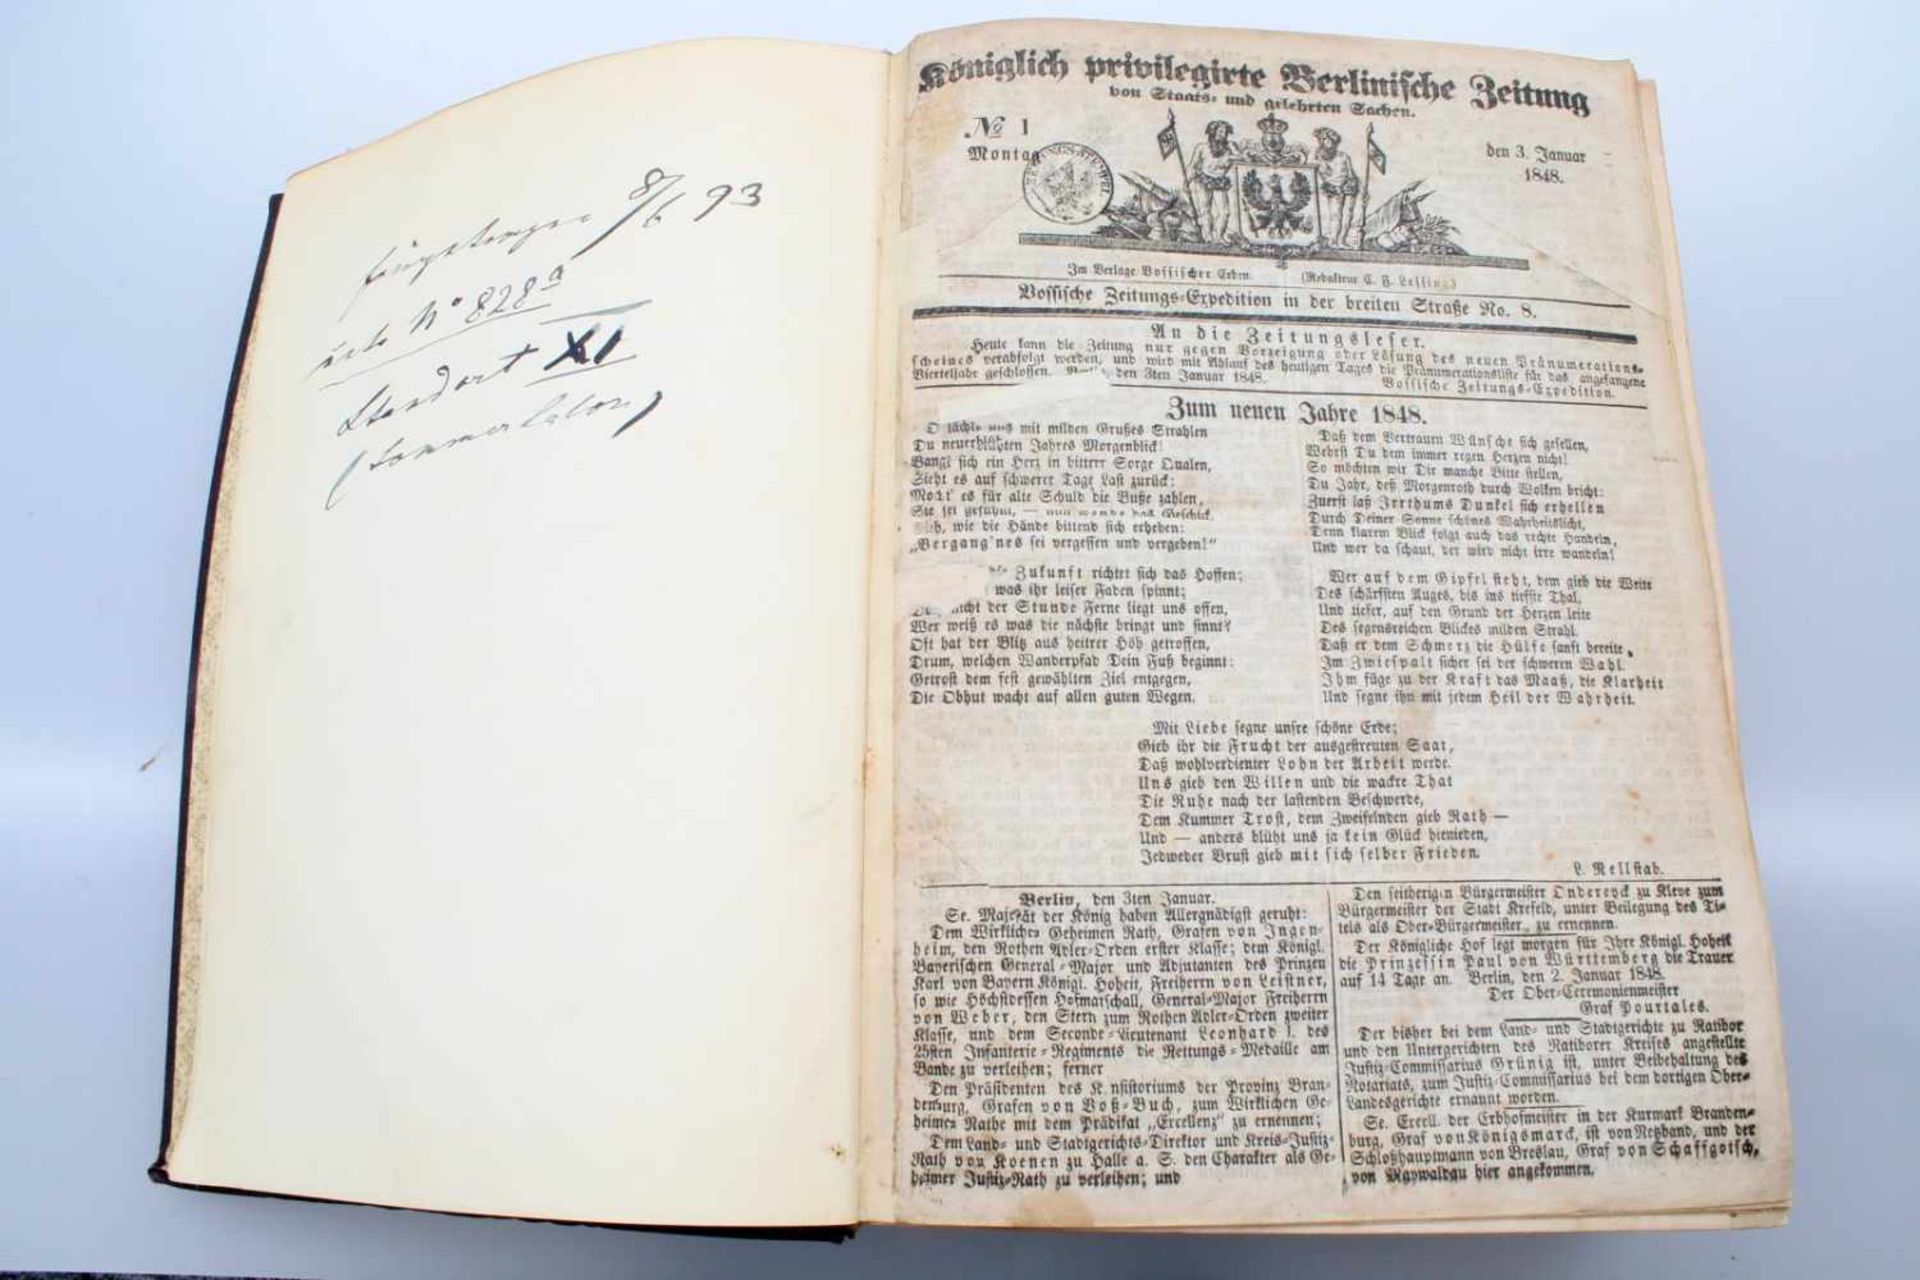 8/6 93
No 828a
Standort XI
Königlich privilegirte Berlinische Zeitung
von Staats- und gelehrten Sachen.
No 1
Montag
den 3. Januar
1848.
Im Verlage Vossischer Erben.
(Redakteur C. F. Lessing)
Vossische Zeitungs-Expedition in der breiten Straße No. 8.
An die Zeitungsleser.
Heute kann die Zeitung nur gegen Vorzeigung oder Lösung des neuen Pränumerations-
scheines verabfolgt werden, und wird mit Ablauf des heutigen Tages die Pränumerationsliste für das angefangene
Vierteljahr geschlossen. den 3ten Januar 1848. Vossische Zeitungs-Expedition.
Zum neuen Jahre 1848.
O mit milden Grußes Strahlen
Du neuerblühten Jahres Morgenblick!
Bangt sich ein Herz in bittrer Sorge Qualen,
Sieht es auf schwerer Tage Last zurück:
Möcht' es für alte Schuld die Buße zahlen,
Sie sei gesühnt, — das Geschick.
wie die Hände bittend sich erheben:
„Vergang'nes sei vergessen und vergeben!“
Zukunft richtet sich das Hoffen;
was ihr leiser Faden spinnt;
nicht der Stunde Ferne liegt uns offen,
Wer weiß es was die nächste bringt und sinnt?
Oft hat der Blitz aus heitrer Höh getroffen,
Drum, welchen Wanderpfad Dein Fuß beginnt:
Getrost dem fest gewählten Ziel entgegen,
Die Obhut wacht auf allen guten Wegen.
Daß dem Vertraum Wünsche sich gesellen,
Wehrst Du dem immer regen Herzen nicht!
So möchten wir Dir manche Bitte stellen,
Du Jahr, deß Morgenroth durch Wolken bricht:
Zuerst laß Irrthums Dunkel sich erhellen
Durch Deiner Sonne schönes Wahrheitslicht,
Denn klarem Blick folgt auch das rechte Handeln,
Und wer da schaut, der wird nicht irre wandeln!
Wer auf dem Gipfel steht, dem gieb die Weite
Des schärfsten Auges, bis ins tiefste Thal,
Und tiefer, auf den Grund der Herzen leite
Des segensreichen Blickes milden Strahl.
Daß er dem Schmerz die Hülfe sanft bereite,
Im Zwiespalt sicher sei der schweren Wahl.
Ihm füge zu der Kraft das Maaß, die Klarheit
Und segne ihn mit jedem Heil der Wahrheit.
Mit Liebe segne unsre schöne Erde;
Gieb ihr die Frucht der ausgestreuten Saat,
Daß wohlverdienter Lohn der Arbeit werde.
Uns gieb den Willen und die wackre That
Die Ruhe nach der lastenden Beschwerde,
Dem Kummer Trost, dem Zweifelnden gieb Rath —
Und — anders blüht uns ja kein Glück hienieden,
Jedweder Brust gieb mit sich selber Frieden.
L. Rellstab.
Berlin, den 3ten Januar.
Se. Majestät der König haben Allergnädigst geruht:
Dem Wirklichen Geheimen Rath, Grafen von Ingen-
heim, den Rothen Adler-Orden erster Klasse; dem Königl.
Bayerischen General-Major und Adjutanten des Prinzen
Karl von Bayern Königl. Hoheit, Freiherrn von Leistner,
so wie Höchstdessen Hofmarschall, General-Major Freiherrn
von Weber, den Stern zum Rothen Adler-Orden zweiter
Klasse, und dem Seconde-Lieutenant Leonhard I. des
25sten Infanterie-Regiments die Rettungs-Medaille am
Bande zu verleihen; ferner
Den Präsidenten des Konsistoriums der Provinz Bran-
denburg, Grafen von Voß-Buch, zum Wirklichen Ge-
heimen Rathe mit dem Prädikat „Excellenz“ zu ernennen;
Dem Land- und Stadtgerichts-Direktor und Kreis-Justiz-
Rath von Koenen zu Halle a. S. den Charakter als Ge-
heimer Justiz-Rath zu verleihen; und
Den seitherigen Bürgermeister Ondereyck zu Kleve zum
Bürgermeister der Stadt Krefeld, unter Beilegung des Ti-
tels als Ober-Bürgermeister, zu ernennen.
Der Königliche Hof legt morgen für Ihre Königl. Hoheit
die Prinzessin Paul von Württemberg die Trauer
auf 14 Tage an. Berlin, den 2. Januar 1848.
Der Ober-Ceremonienmeister
Graf Pourtales.
Der bisher bei dem Land- und Stadtgerichte zu Ratibor
und den Untergerichten des Ratiborer Kreises angestellte
Justiz-Commissarius Grünig ist, unter Beibehaltung des
Notariats, zum Justiz-Commissarius bei dem dortigen Ober-
Landesgerichte ernannt worden.
Se. Excell. der Erbhofmeister in der Kurmark Branden-
burg, Graf von Königsmarck, ist von Netzband, und der
Schloßhauptmann von Breslau, Graf von Schaffgotsch,
von Maywaldau hier angekommen.